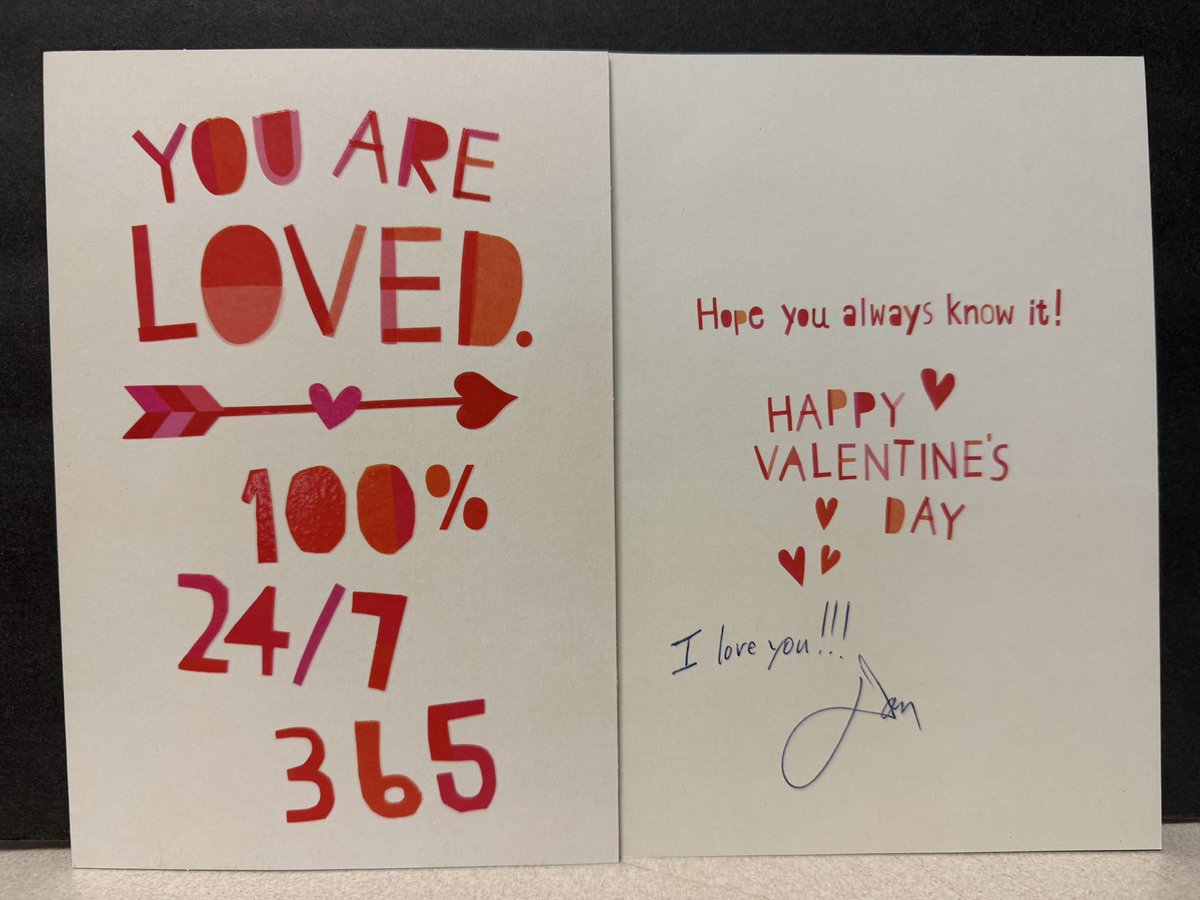 YOU ARE
LOVED.
100%
24/7
365
Hope you always know it!
HAPPY
VALENTINE'S
DAY
I love you!!!